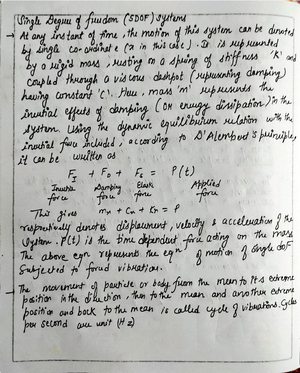 Single Degree of freedom (SDOF) systems
→ At any instant of time, the motion of this system can be denoted
by single co-ordinate (x in this case). It is represented
by a rigid mass, resting on a spring of stiffness 'K' and
coupled through a viscous dashpot (representing damping)
having constant 'C'. Here, mass 'm' represents the
inertial effects of damping (or energy dissipation) in the
system. Using the dynamic equilibrium relation with the
inertial force included, according to D'Alembert's principle,
it can be written as
F_I + F_D + F_s = P(t)
Inertia Damping Elastic Applied
force force force force
This gives mẍ + Cẋ + Kx = P
respectively denotes displacement, velocity & acceleration of the
system. P(t) is the time dependent force acting on the mass.
The above eqn represents the eqn of motion of single dof
subjected to forced vibration.
→ The movement of particle or body from the mean to its extreme
position in the direction, then to the mean and another extreme
position and back to the mean is called cycle of vibrations. Cycles
per second are unit (Hz)